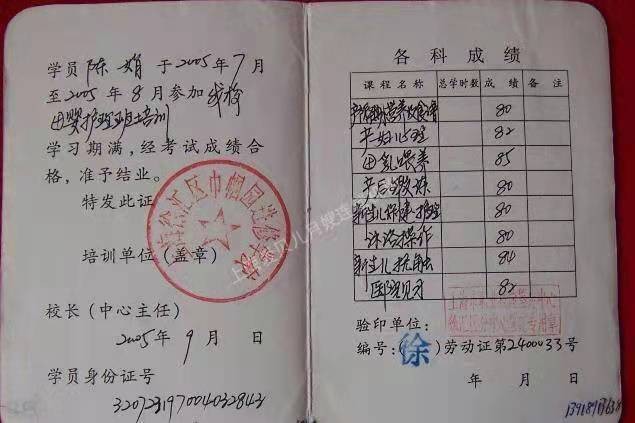 学员 陈娟 于 2005年 7月
至2005年 8月参加 我校
母婴护理班培训
学习期满，经考试成绩合
格，准予结业。
特发此证
培训单位（盖章）
校长（中心主任）
2005年 9月 日
学员身份证号
320723197004032843
各科成绩
课程名称 总学时数 成绩 备注
80
产妇心理 82
母乳喂养 85
产后锻炼 80
新生儿保健护理 80
沐浴操作 80
新生儿抚触 84
82
验印单位：
编号：（徐）劳动证第2400033号
年 月 日